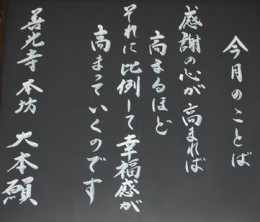 今月のことば
感謝の心が高まれば
高まるほど
それに比例して幸福感が
高まっていくのです
善光寺本坊 大本願